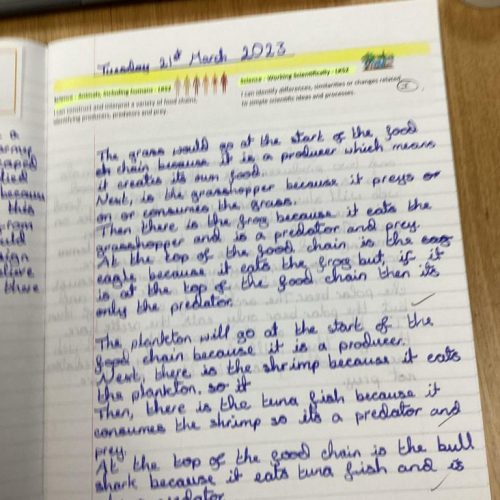 Tuesday 21st March 2023
Science - Animals, including humans - LKS2
I can construct and interpret a variety of food chains,
identifying producers, predators and prey.
Science - Working Scientifically - LKS2
I can identify differences, similarities or changes related
to simple scientific ideas and processes.
The grass would go at the start of the food
ch chain because it is a producer which means
it creates its own food.
Next, is the grasshopper because it preys or
on or consumes the grass.
Then there is the frog because it eats the
grasshopper and is a predator and prey.
At the top of the food chain is the eag
eagle because it eats the frog but, if it
is at the top of the food chain then its
only the predator.
The plankton will go at the start of the
food chain because it is a producer.
Next, there is the shrimp because it eats
the plankton, so it
Then, there is the tuna fish because it
consumes the shrimp so its a predator and
prey.
At the top of the food chain is the bull
shark because it eats tuna fish and is
predator
a
because
this
there